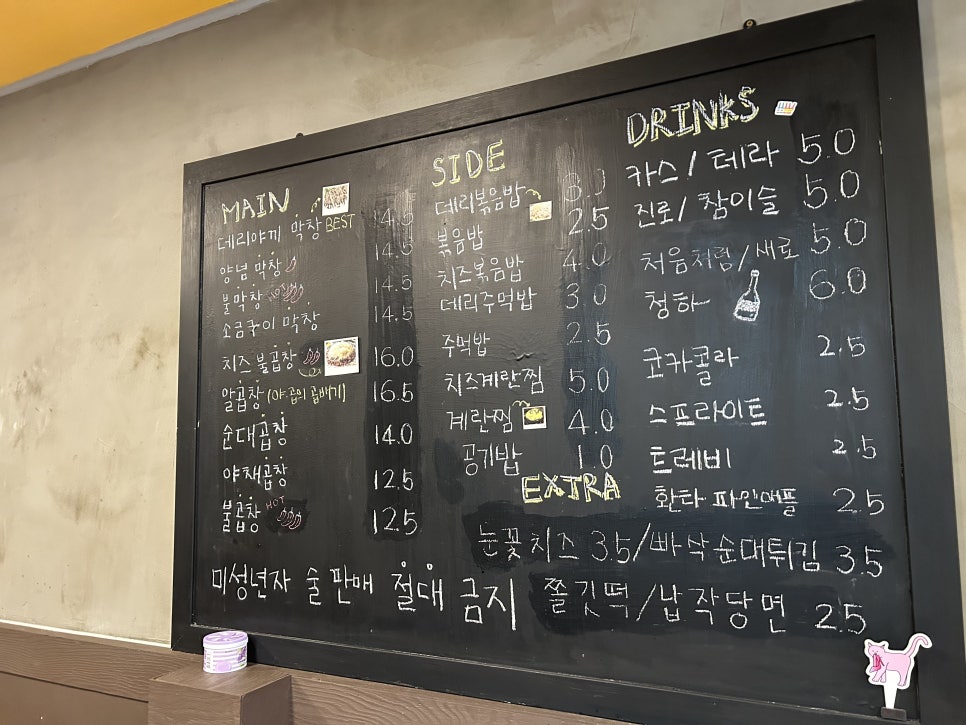 MAIN
데리야끼 막창 BEST 14.5
양념 막창 14.5
불막창 14.5
소금구이 막창 14.5
치즈 불곱창 16.0
알곱창 (야곱의 곱빼기) 16.5
순대곱창 14.0
야채곱창 12.5
불곱창 HOT 12.5
SIDE
데리볶음밥 3.0
볶음밥 2.5
치즈볶음밥 4.0
데리주먹밥 3.0
주먹밥 2.5
치즈계란찜 5.0
계란찜 4.0
공기밥 1.0
DRINKS
카스/테라 5.0
진로/참이슬 5.0
처음처럼/새로 5.0
청하 6.0
코카콜라 2.5
스프라이트 2.5
트레비 2.5
환타 파인애플 2.5
EXTRA
눈꽃치즈 3.5/빠삭순대튀김 3.5
쫄깃떡/납작당면 2.5
미성년자 술 판매 절대 금지